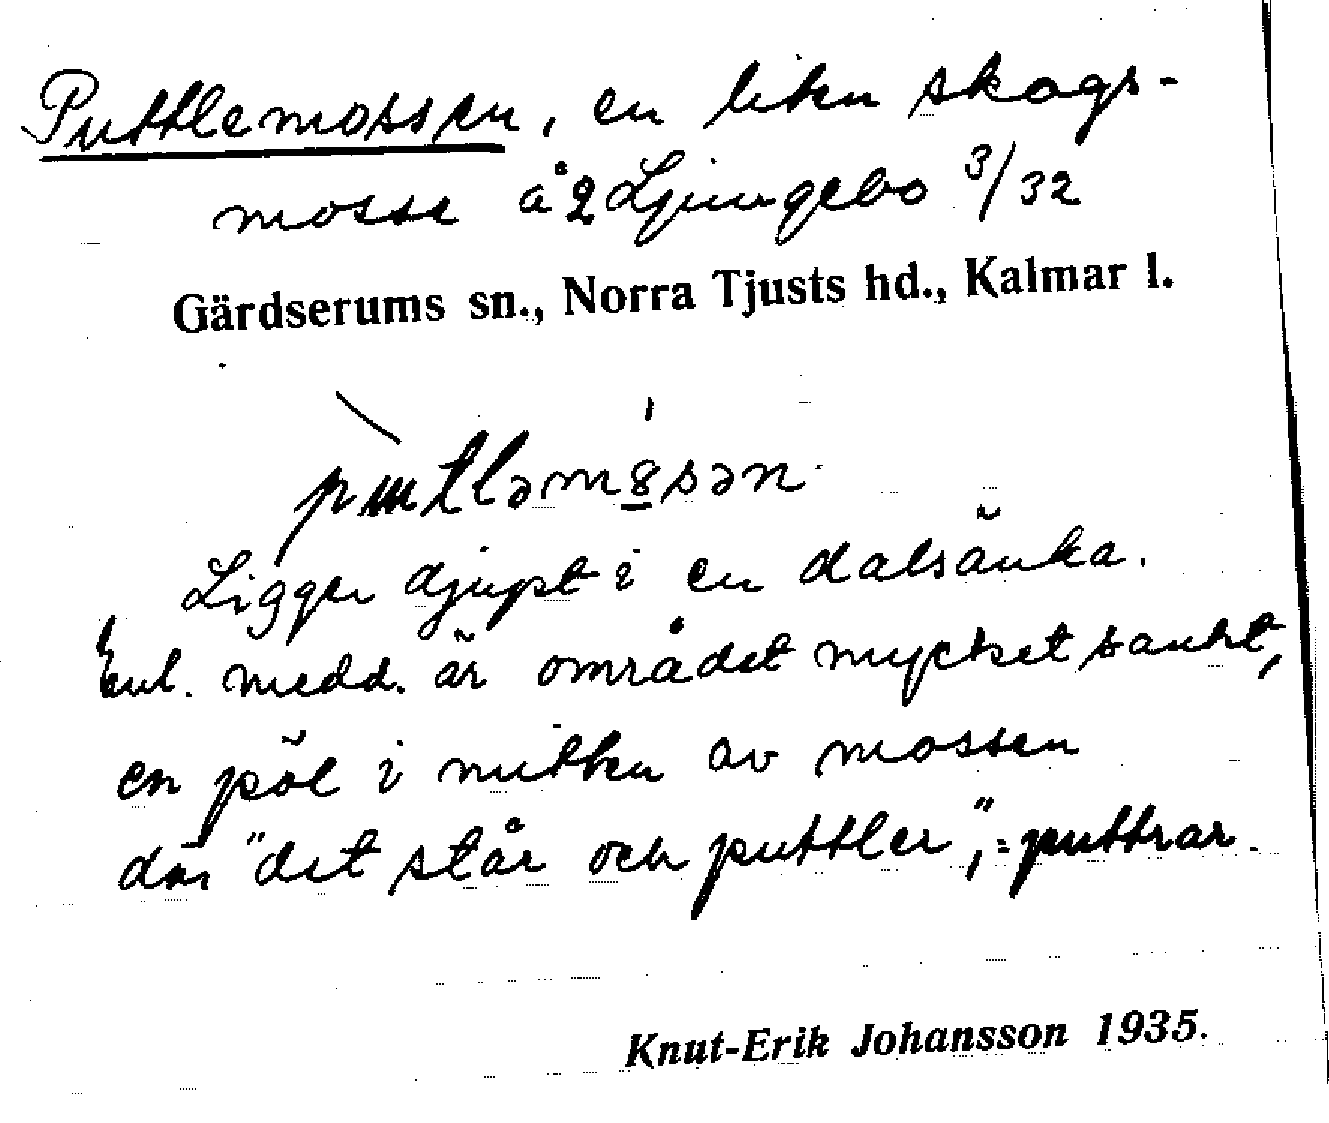 Puttlemossen, en liten skogs-
mosse å 2 Ljungebo 3/32
Gärdserums sn., Norra Tjusts hd., Kalmar l.
Ligger djupt i en dalsänka.
Enl. medd. är området mycket sankt,
en pöl i mitten av mossen
där "det står och puttler", = puttrar.
Knut-Erik Johansson 1935.